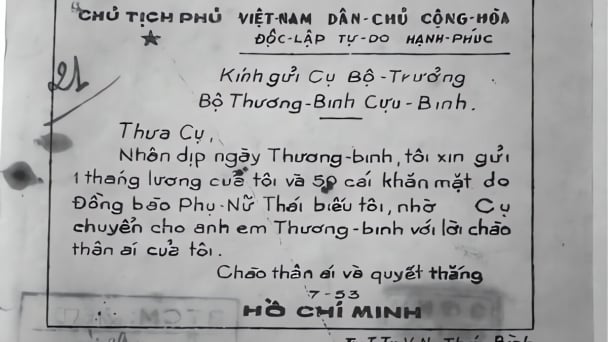 CHỦ TỊCH PHỦ VIỆT-NAM DÂN-CHỦ CỘNG-HÒA
ĐỘC-LẬP TỰ-DO HẠNH-PHÚC
21
Kính gửi Cụ Bộ-Trưởng
Bộ Thương-Binh Cựu-Binh.
Thưa Cụ,
Nhân dịp ngày Thương-binh, tôi xin gửi
1 tháng lương của tôi và 50 cái khăn mặt do
Đồng bào Phụ-Nữ Thái biếu tôi, nhờ Cụ
chuyển cho anh em Thương-binh với lời chào
thân ái của tôi.
Chào thân ái và quyết thắng
7-53
HỒ CHÍ MINH